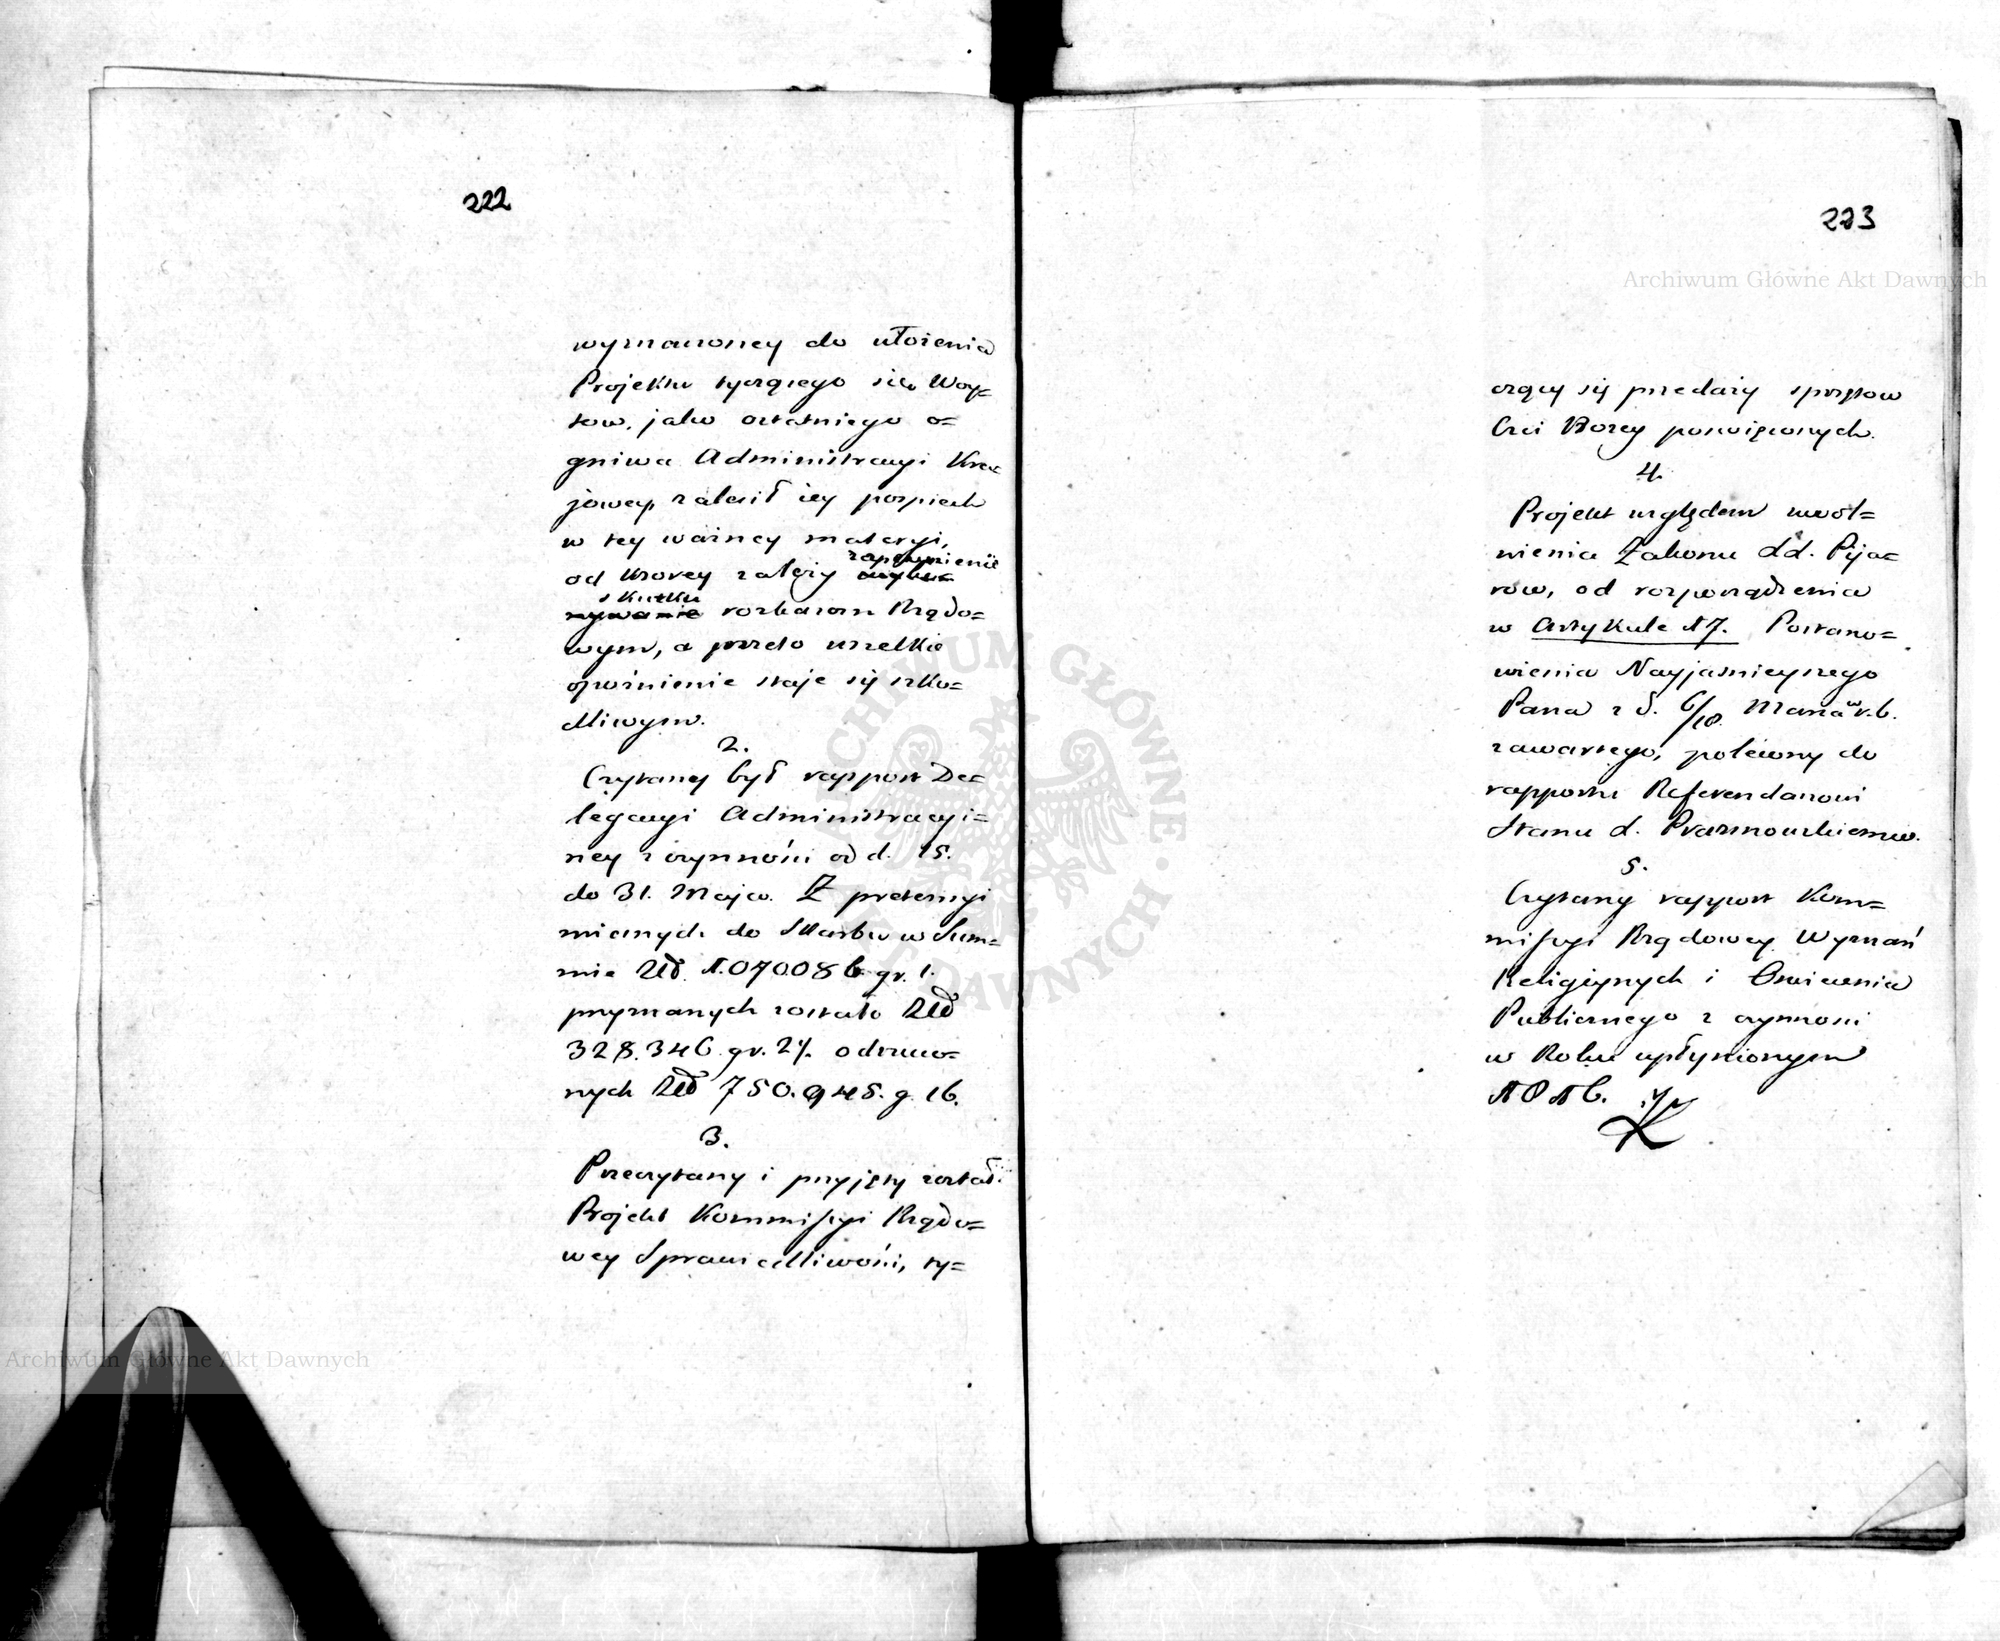 222
wyznaczoney do ułożenia
Projektu tyczącego się Woy=
tow, jako ostatniego o=
gniwa Administracyi Kra=
jowey, zalecił iey pospiech
w tey ważney materyi,
od ktorey zależy zapewnienie
skutku rozkazom Rządo=
wym, a przeto wszelkie
opóźnienie staje się szko=
dliwym.
2.
Czytany był rapport De=
legacyi Administracyi=
ney z czynności od d. 15.
do 31. Maja. Z pretensyi
mianych do Skarbu w Sum=
mie Złł. 1.079.086 gr. 1.
przyznanych zostało Złł
328.346. gr. 24. odrzuco=
nych Złł 750.945. g. 16.
3.
Przeczytany i przyjęty został
Projekt Kommissyi Rządo=
wey Sprawiedliwości, ty=
223
czący się przedaży sprzętow
Czci Bozey poswięconych.
4.
Projekt względem uwol=
nienia Zakonu XX. Pija=
row, od rozporządzenia
w Artykule 17. Postano=
wienia Nayjasnieyszego
Pana z d. 6/18. Marca r.b.
zawartego, polecony do
rapportu Referendarzowi
Stanu X. Prazmowskiemu.
5.
Czytany rapport Kom=
missyi Rządowey Wyznań
Religiynych i Oswiecenia
Publicznego z czynnosci
w Roku upłynionym
1816.
Archiwum Główne Akt Dawnych
Archiwum Główne Akt Dawnych
ARCHIWUM GŁÓWNE AKT DAWNYCH